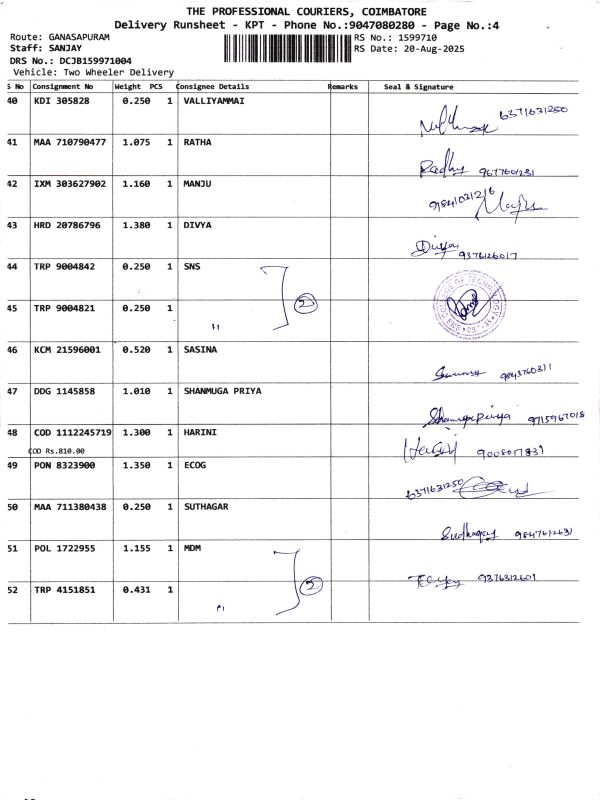 THE PROFESSIONAL COURIERS, COIMBATORE
Delivery Runsheet - KPT - Phone No.:9047080280 - Page No.:4
Route: GANASAPURAM RS No.: 1599710
Staff: SANJAY RS Date: 20-Aug-2025
DRS No.: DCJB159971004
Vehicle: Two Wheeler Delivery
S No Consignment No Weight PCS Consignee Details Remarks Seal & Signature
40 KDI 305828 0.250 1 VALLIYAMMAI 6371631250
41 MAA 710790477 1.075 1 RATHA Radhy
42 IXM 303627902 1.160 1 MANJU Manju
43 HRD 20786796 1.380 1 DIVYA Divya 9376126017
44 TRP 9004842 0.250 1 SNS 2
45 TRP 9004821 0.250 1 "
46 KCM 21596001 0.520 1 SASINA
47 DDG 1145858 1.010 1 SHANMUGA PRIYA Shanmugapriya 9715967018
48 COD 1112245719 1.300 1 HARINI Harini
COD Rs.810.00
49 PON 8323900 1.350 1 ECOG 6371631250
50 MAA 711380438 0.250 1 SUTHAGAR
51 POL 1722955 1.155 1 MDM 2
52 TRP 4151851 0.431 1 " 9376312601